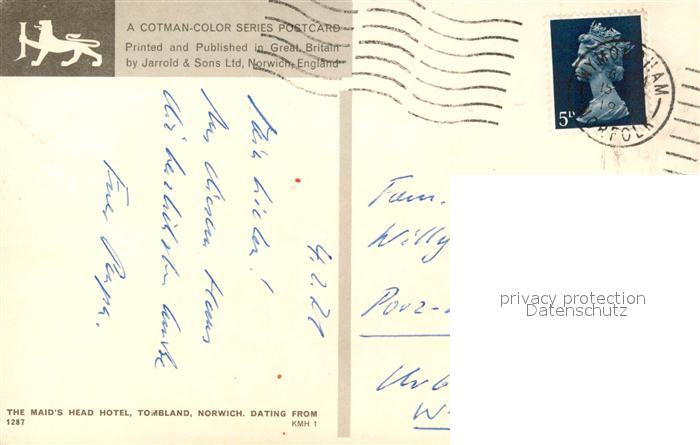 A COTMAN-COLOR SERIES POSTCARD
Printed and Published in Great Britain
by Jarrold & Sons Ltd, Norwich, England
5D
WYMONDHAM
NORFOLK
4.2.71
Aus diesem Haus
die herzlichsten Grüße
Euer Papa.
Fam.
Willy
Porz-
privacy protection
Datenschutz
THE MAID'S HEAD HOTEL, TOMBLAND, NORWICH. DATING FROM
1287
KMH 1